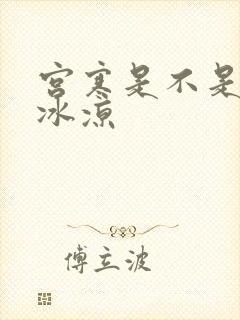 宫寒是不是
冰凉
傅立波